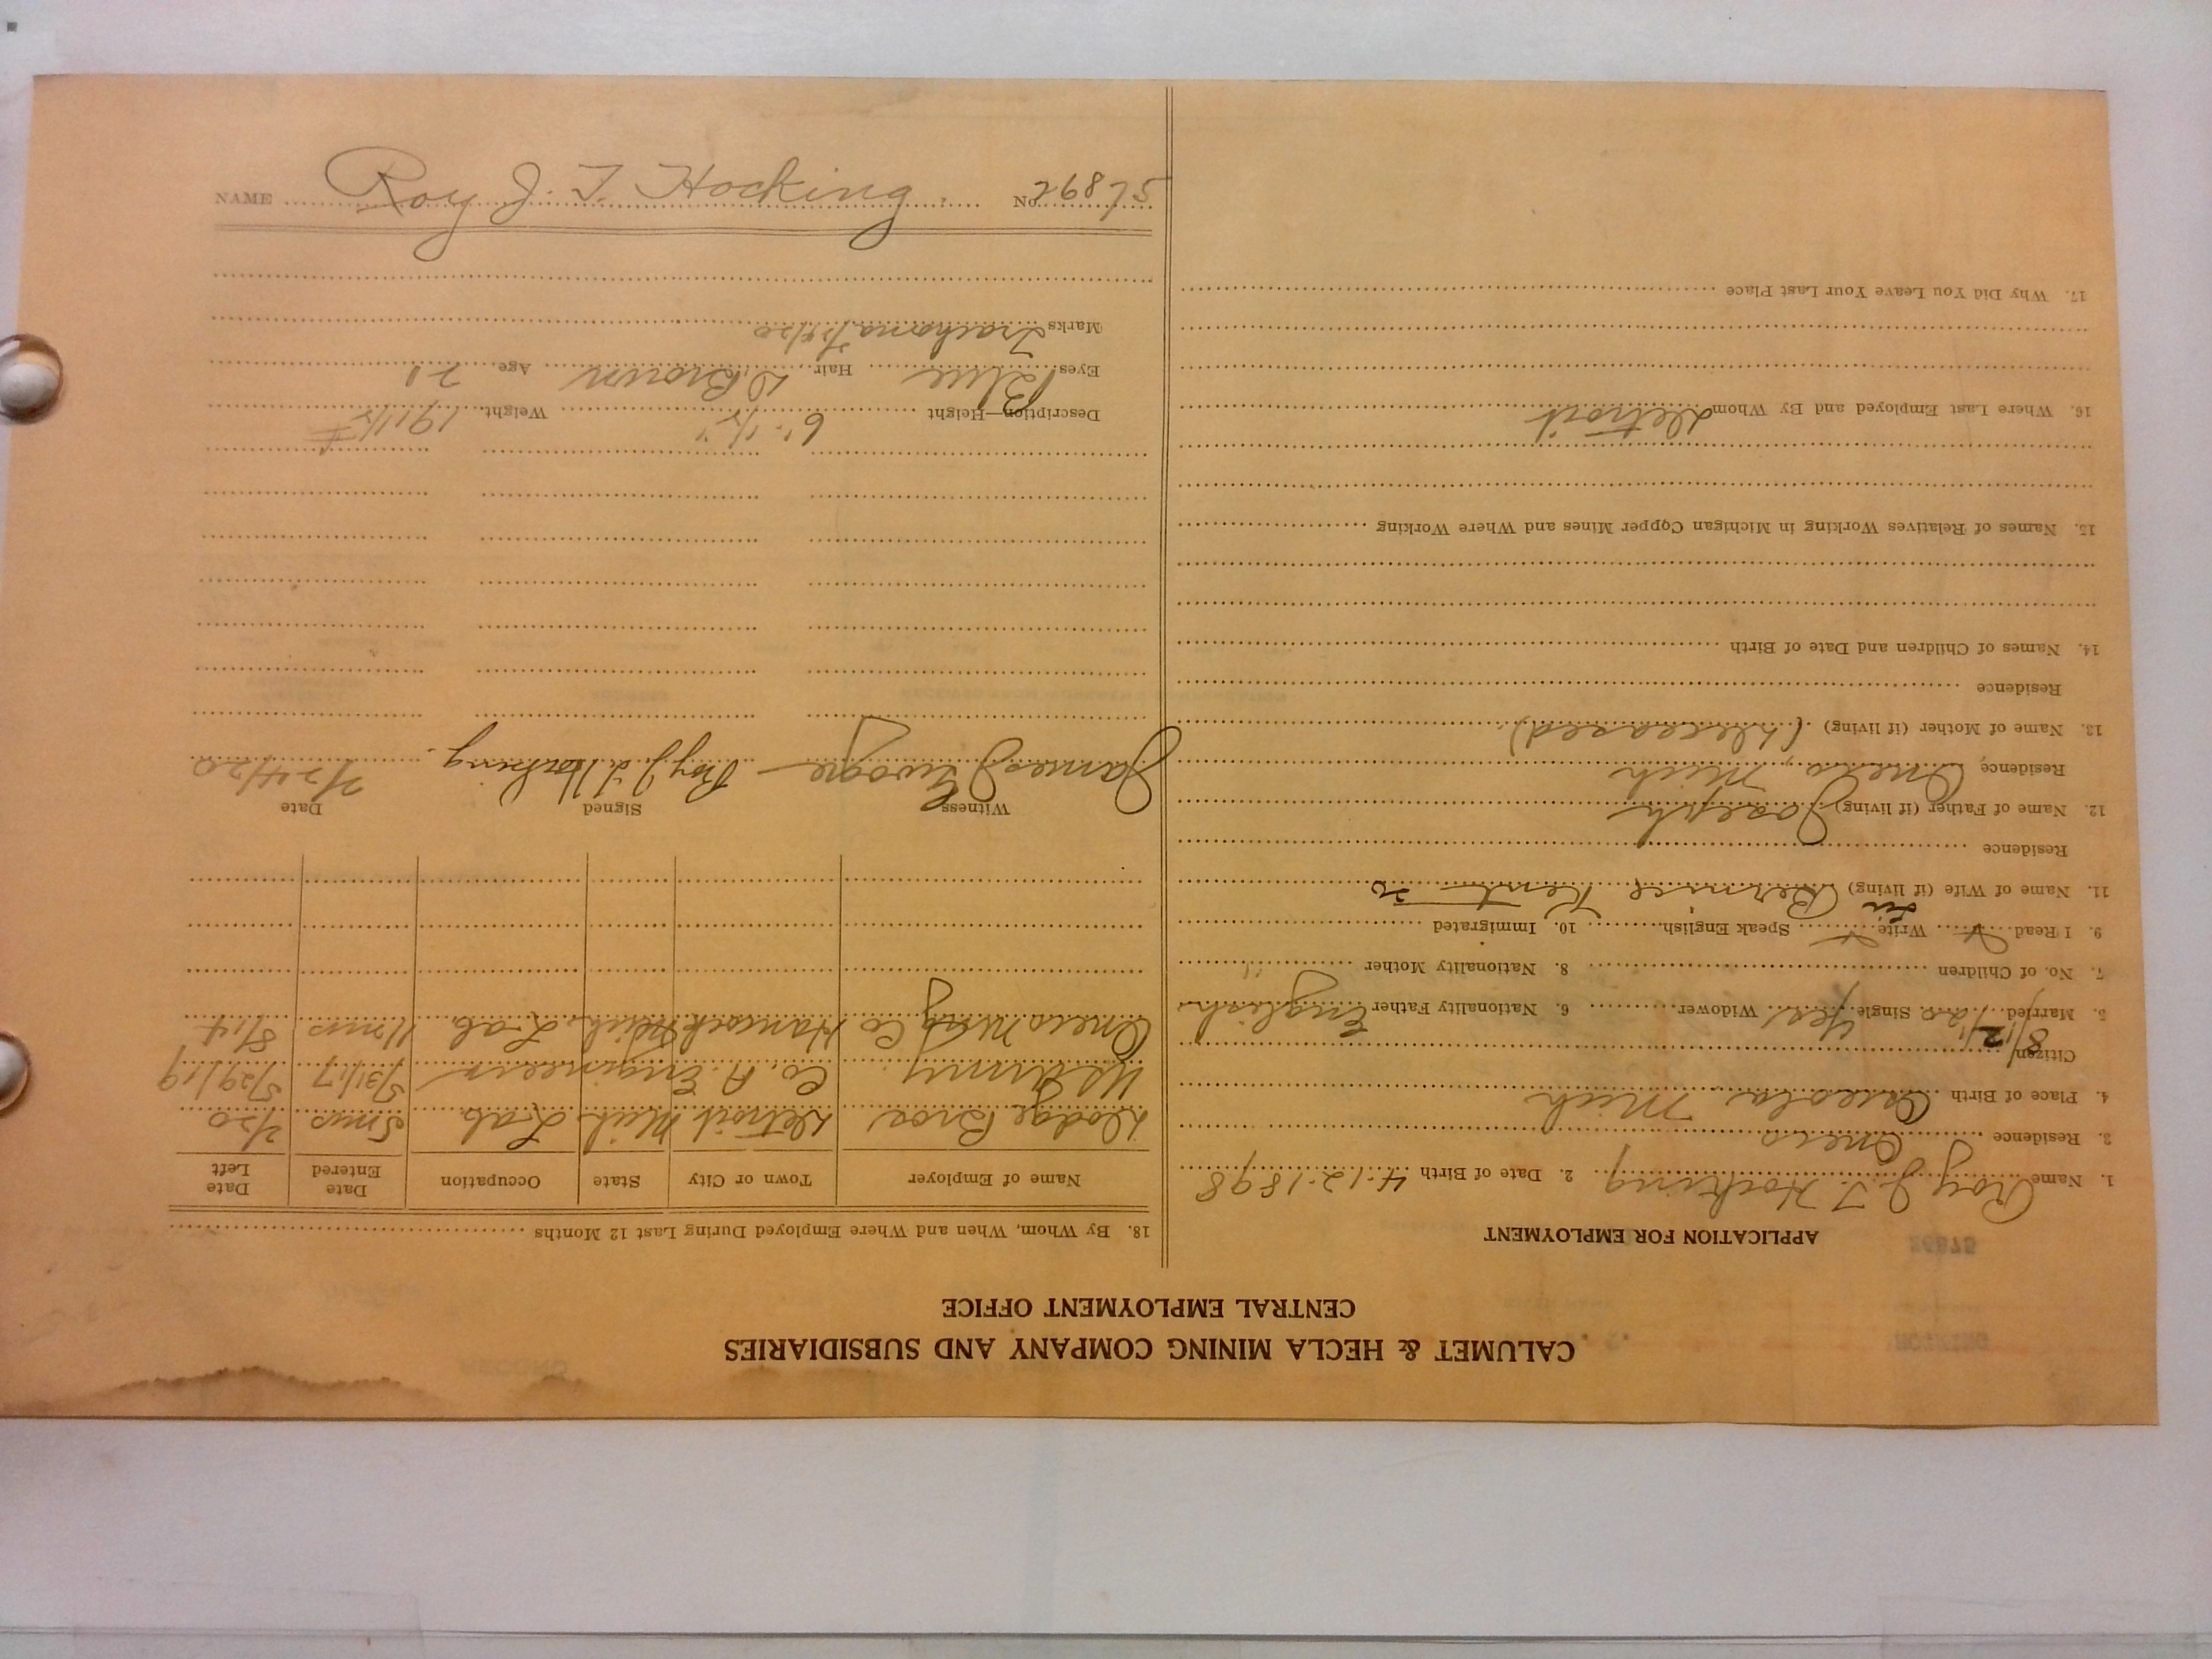 CALUMET & HECLA MINING COMPANY AND SUBSIDIARIES
CENTRAL EMPLOYMENT OFFICE
APPLICATION FOR EMPLOYMENT
1. Name Roy J. T. Hocking 2. Date of Birth 4-12-1898
3. Residence
4. Place of Birth Osceola Mich
Citizen
5. Married 8/12/20 Single Yes Widower 6. Nationality Father English
7. No. of Children 8. Nationality Mother " "
9. I Read Write Speak English 10. Immigrated
11. Name of Wife (if living) Bernice Kent
Residence
12. Name of Father (if living) Joseph
Residence Mich
13. Name of Mother (if living) (Deceased)
Residence
14. Names of Children and Date of Birth
15. Names of Relatives Working in Michigan Copper Mines and Where Working
16. Where Last Employed and By Whom Detroit
17. Why Did You Leave Your Last Place
18. By Whom, When and Where Employed During Last 12 Months
Name of Employer Town or City State Occupation Date Entered Date Left
Dodge Bros Detroit Mich. Lab. 5 mos 2/20
US Army Co. A. Engineers 5/31/17 5/29/19
Co Hancock Mich. Lab. 11 mos
Witness Signed Date
James Roy J. T. Hocking. 7/24/20
Description—Height 6' 1/2" Weight 191 1/2 #
Eyes Blue Hair D. Brown Age 21
Marks Trachoma 7/24/20
NAME Roy J. T. Hocking. No. 26875